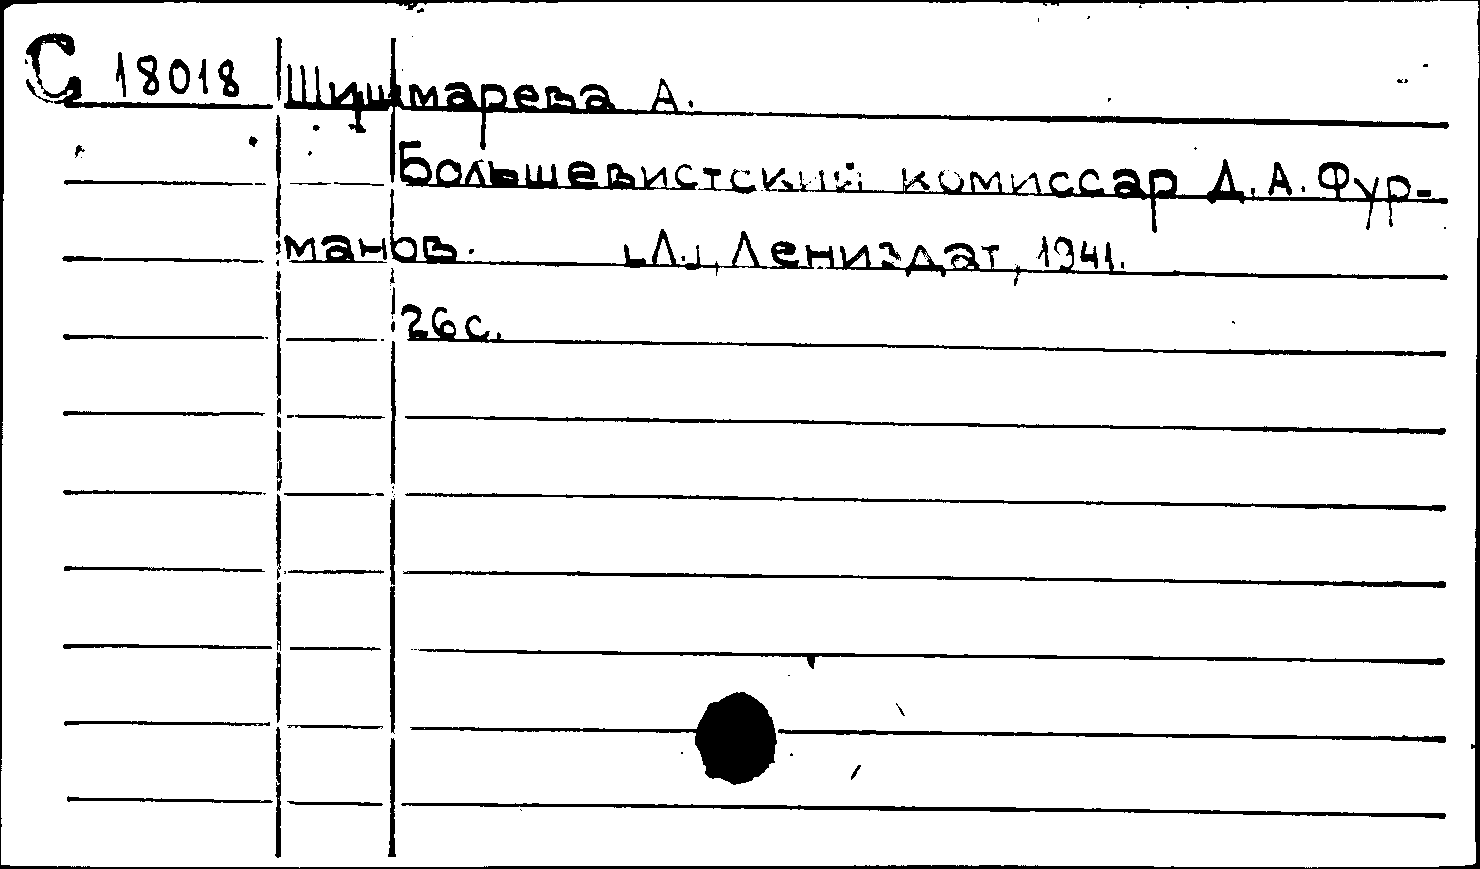 С 18018 Шишмарева А.
Большевистский комиссар Д. А. Фур-
манов. [Л.], Лениздат, 1941.
26 с.